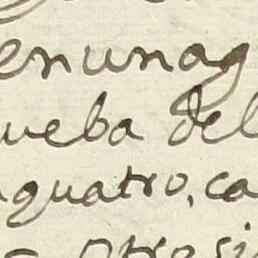 enunag
ueba del
quatro, ca
otro si